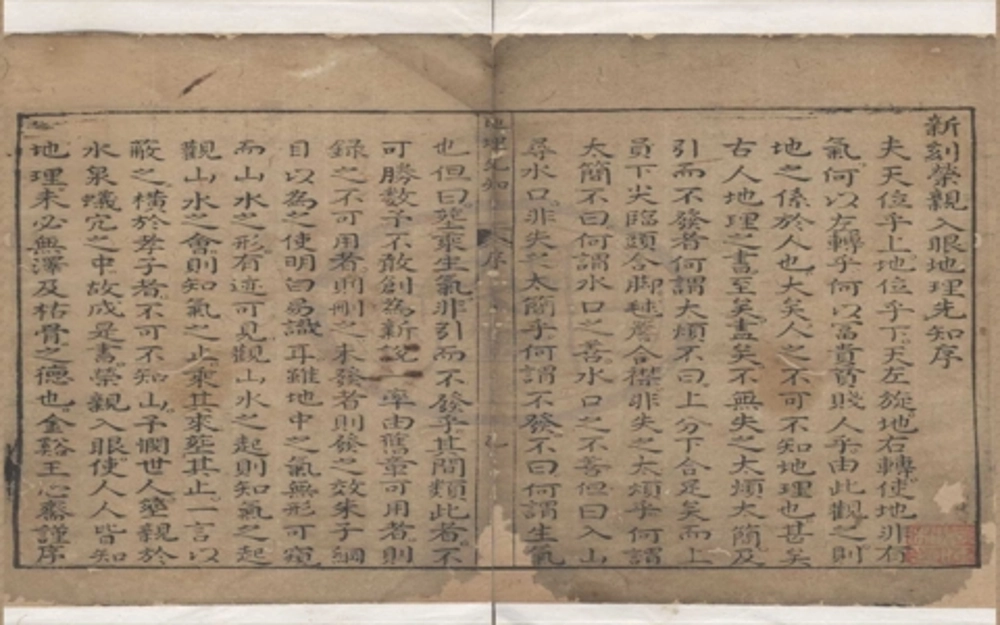 新刻榮親入眼地理先知序
夫天位乎上地位乎下天左旋地右轉使地非有
氣何以左轉乎何以富貴貧賤人乎由此觀之則
地之係於人也大矣人之不可不知地理也甚矣
古人地理之書至矣盡矣不無失之大煩大簡及
引而不發者何謂大煩不曰上分下合足矣而上
員下尖臨頭合脚毬簷合襟非失之太煩乎何謂
大簡不曰何謂水口之善水口之不善但曰入山
尋水口非失之太簡乎何謂不發不曰何謂生氣
地理先知 序
也但曰塟乘生氣非引而不發乎其間類此者不
可勝數予不敢創為新說一率由舊章可用者則
錄之不可用者則刪之未發者則發之效朱子綱
目以為之使明白易識耳雖地中之氣無形可窺
而山水之形有迹可見觀山水之起則知氣之起
觀山水之會則知氣之止乘其來塟其止一言以
蔽之橫於孝子者不可不知山予憫世人塟親於
水泉蟻穴之中故成是書榮親入眼使人人皆知
地理未必無澤及枯骨之德也金谿王心齋謹序